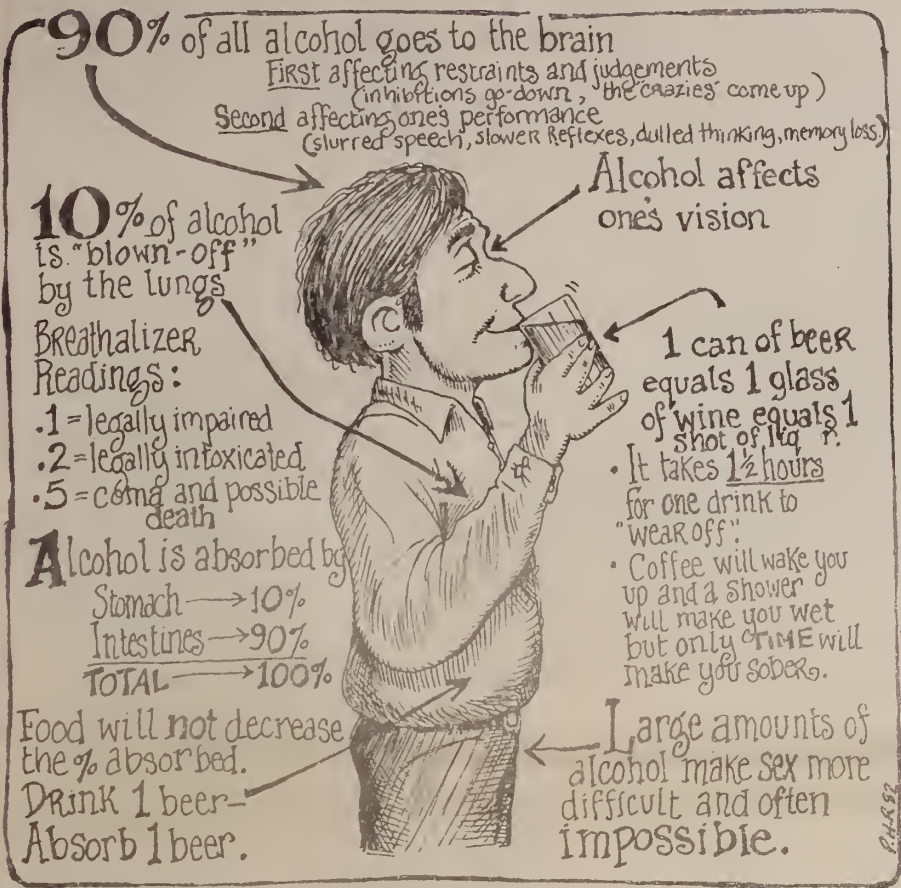 90% of all alcohol goes to the brain
First affecting restraints and judgements
(inhibitions go-down, the "crazies" come up)
Second affecting one's performance
(slurred speech, slower Reflexes, dulled thinking, memory loss.)
Alcohol affects
one's vision
10% of alcohol
is "blown-off"
by the lungs
Breathalizer
Readings:
.1 = legally impaired
.2 = legally intoxicated
.5 = coma and possible
death
Alcohol is absorbed by
Stomach → 10%
Intestines → 90%
TOTAL → 100%
Food will not decrease
the % absorbed.
Drink 1 beer-
Absorb 1 beer.
1 can of beer
equals 1 glass
of wine equals 1
shot of liq r.
• It takes 1½ hours
for one drink to
"wear off".
• Coffee will wake you
up and a shower
will make you wet
but only TIME will
make you sober.
Large amounts of
alcohol make sex more
difficult and often
impossible.